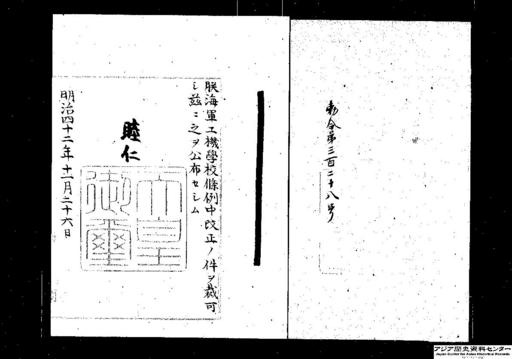 勅令第三百二十八号
朕海軍工機學校條例中改正ノ件ヲ裁可
シ茲ニ之ヲ公布セシム
睦仁
天皇
御璽
明治四十二年十一月二十六日
アジア歴史資料センター
Japan Center for Asian Historical Records